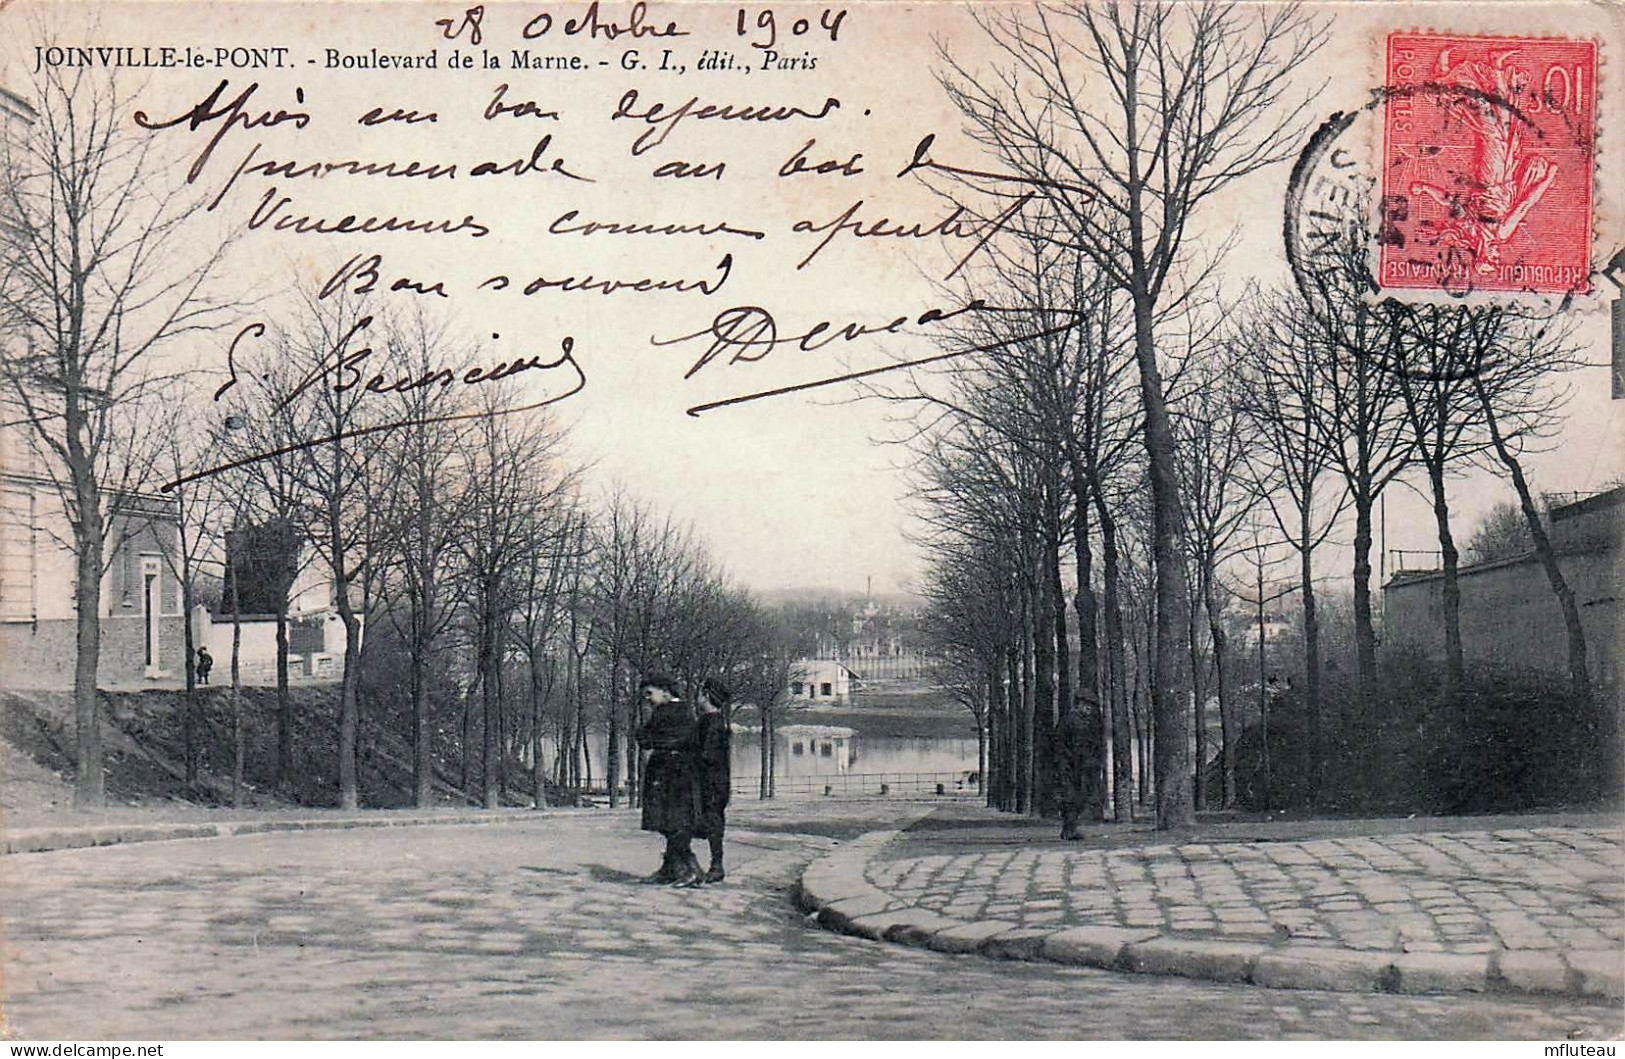 28 Octobre 1904
JOINVILLE-le-PONT. - Boulevard de la Marne. - G. I., édit., Paris
Après un bon dejeuner.
promenade au bois de
Vincennes comme apéritif
Bon souvenir
E
10 c
POSTES
REPUBLIQUE FRANÇAISE
SEINE
mfluteau